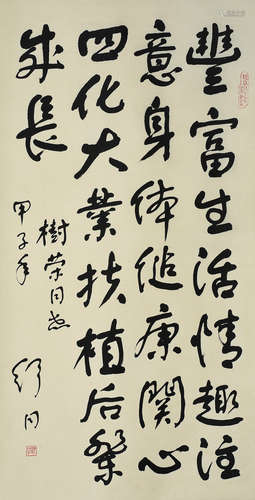 豐富生活情趣注
意身体健康關心
四化大業扶植后輩
成長
樹榮同志
甲子年
舒同